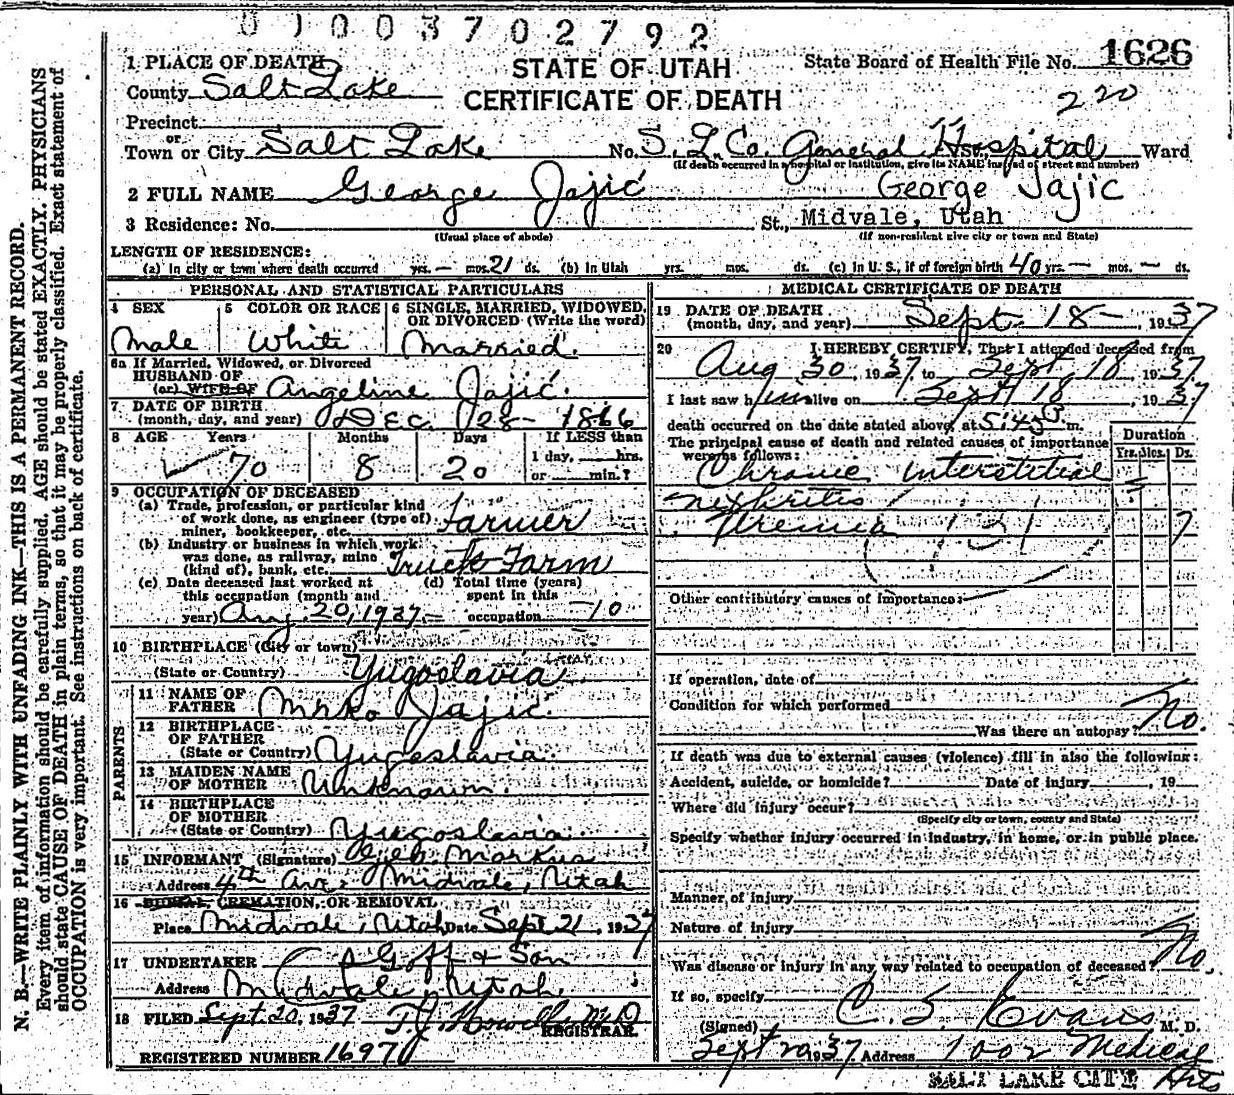 01003702792
STATE OF UTAH
CERTIFICATE OF DEATH
State Board of Health File No. 1626
220
1 PLACE OF DEATH
County Salt Lake
Precinct
or
Town or City Salt Lake No. S. L. Co. General Hospital St., Ward
(If death occurred in a hospital or institution, give its NAME instead of street and number)
2 FULL NAME George Jajić George Jajic
3 Residence: No. St., Midvale, Utah
(Usual place of abode) (If non-resident give city or town and State)
LENGTH OF RESIDENCE:
(a) In city or town where death occurred yrs. — mos. 21 ds. (b) In Utah yrs. mos. ds. (c) In U. S., if of foreign birth 40 yrs. — mos. — ds.
PERSONAL AND STATISTICAL PARTICULARS
4 SEX Male
5 COLOR OR RACE White
6 SINGLE, MARRIED, WIDOWED, OR DIVORCED (Write the word) Married.
6a If Married, Widowed, or Divorced
HUSBAND OF
(or) WIFE OF Angeline Jajić.
7 DATE OF BIRTH
(month, day, and year) Dec. 28 - 1866
8 AGE Years Months Days If LESS than
70 8 20 1 day, hrs.
or min.?
9 OCCUPATION OF DECEASED
(a) Trade, profession, or particular kind
of work done, as engineer (type of)
miner, bookkeeper, etc. Farmer
(b) Industry or business in which work
was done, as railway, mine
(kind of), bank, etc. Truck Farm
(c) Date deceased last worked at
this occupation (month and
year) Aug. 20, 1937
(d) Total time (years)
spent in this
occupation 10
10 BIRTHPLACE (City or town)
(State or Country) Yugoslavia
PARENTS
11 NAME OF
FATHER Mirko Jajic.
12 BIRTHPLACE
OF FATHER
(State or Country) Yugoslavia.
13 MAIDEN NAME
OF MOTHER Unknown.
14 BIRTHPLACE
OF MOTHER
(State or Country) Yugoslavia.
15 INFORMANT (Signature) Geo Markus
Address 4th Ave. Midvale, Utah
16 BURIAL, CREMATION, OR REMOVAL
Place Midvale, Utah Date Sept 21, 1937
17 UNDERTAKER Goff & Son
Address Midvale, Utah
18 FILED Sept. 20, 1937 T. J. Howells M.D.
REGISTRAR.
REGISTERED NUMBER 1697
MEDICAL CERTIFICATE OF DEATH
19 DATE OF DEATH
(month, day, and year) Sept. 18 -, 1937
20 I HEREBY CERTIFY, That I attended deceased from
Aug 30, 1937 to Sept. 18, 1937
I last saw him alive on Sept 18, 1937
death occurred on the date stated above, at 5:45 m.
The principal cause of death and related causes of importance
were as follows:
Duration
Yrs. Mos. Ds.
Chronic Interstitial
nephritis
Uremia 131 7
Other contributory causes of importance:
If operation, date of
Condition for which performed
Was there an autopsy? No.
If death was due to external causes (violence) fill in also the following:
Accident, suicide, or homicide? Date of injury , 19
Where did injury occur?
(Specify city or town, county and State)
Specify whether injury occurred in industry, in home, or in public place.
Manner of injury
Nature of injury
Was disease or injury in any way related to occupation of deceased? No.
If so, specify
(Signed) C. S. Evans M. D.
Sept 20 1937 Address 1002 Medical
SALT LAKE CITY Arts
N. B.—WRITE PLAINLY WITH UNFADING INK—THIS IS A PERMANENT RECORD.
Every item of information should be carefully supplied. AGE should be stated EXACTLY. PHYSICIANS
should state CAUSE OF DEATH in plain terms, so that it may be properly classified. Exact statement of
OCCUPATION is very important. See instructions on back of certificate.